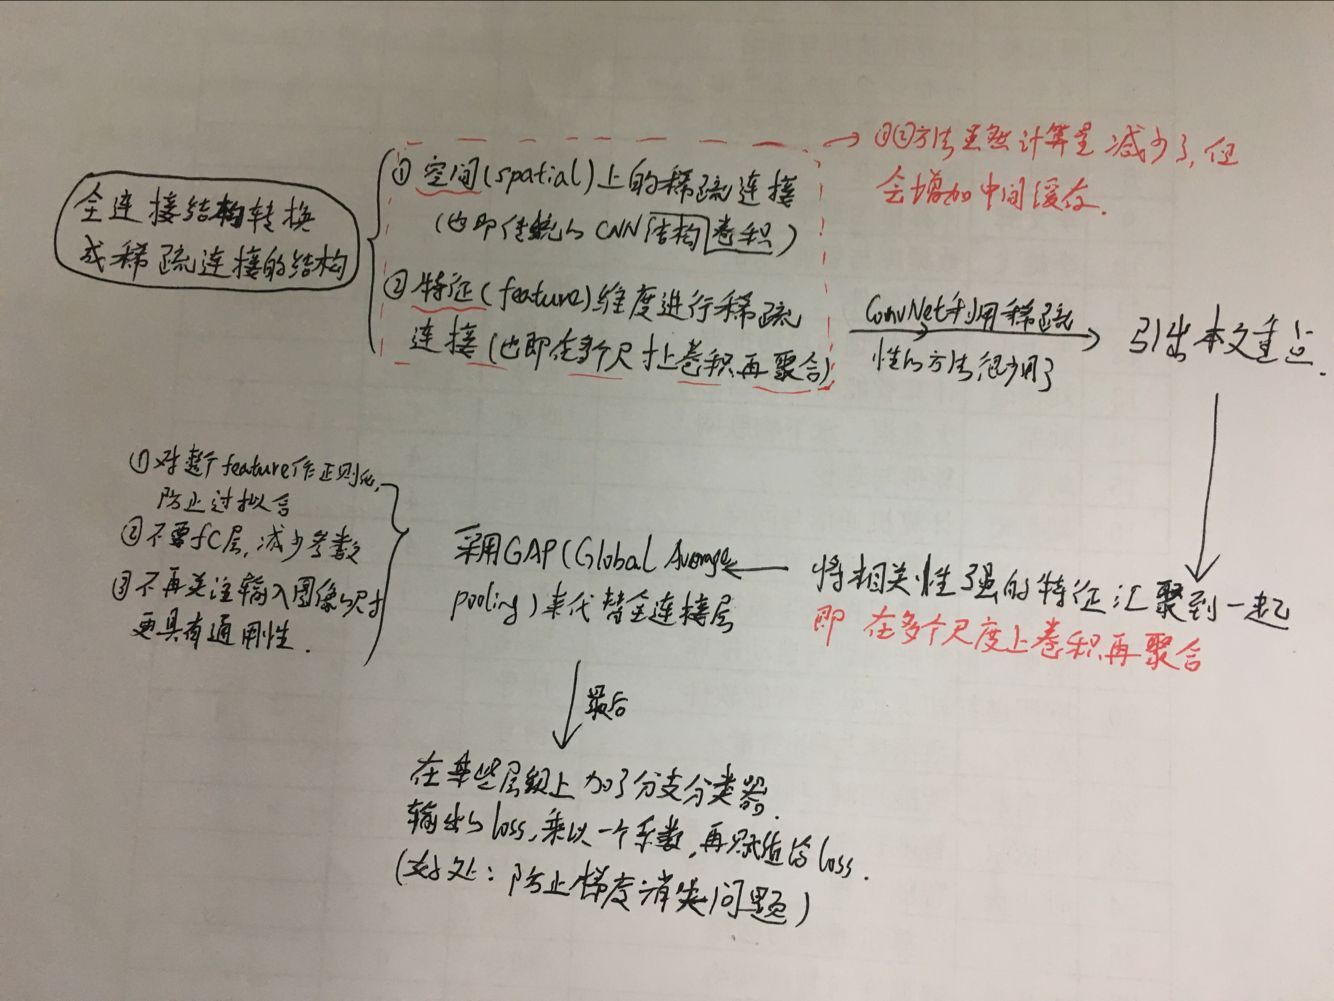 全连接结构转换
成稀疏连接的结构
① 空间(spatial)上的稀疏连接
(也即传统的CNN结构卷积)
② 特征(feature)维度进行稀疏
连接(也即在多个尺寸上卷积再聚合)
→ ①②方法虽然计算量减少了,但
会增加中间缓存.
ConvNet利用稀疏
性的方法很少用了
引出本文重点.
将相关性强的特征汇聚到一起
即 在多个尺度上卷积再聚合
采用GAP(Global Average
pooling)来代替全连接层
①对整个feature作正则化,
防止过拟合
②不要fC层,减少参数
③不再关注输入图像的尺寸
更具有通用性.
最后
在某些层级上加了分支分类器.
输出的loss,乘以一个系数,再赋值给loss.
(好处:防止梯度消失问题)